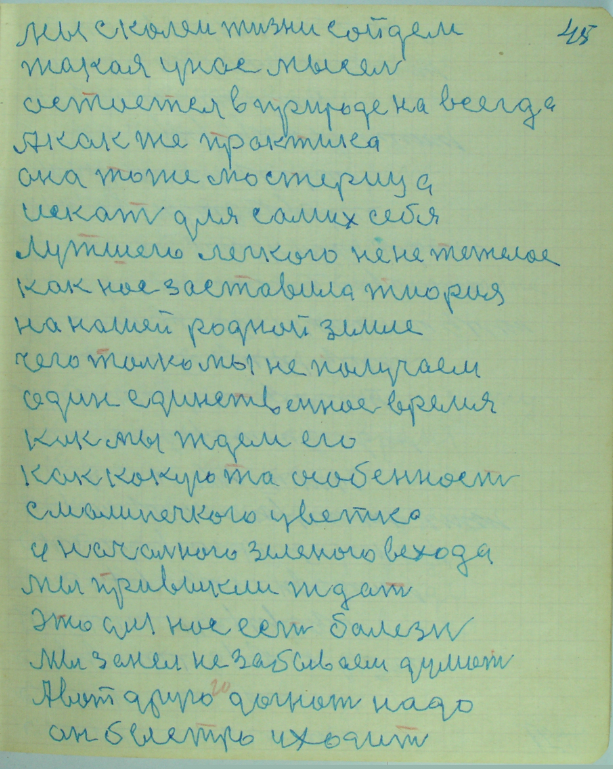 45
мы с колеи жизни сойдем
такая у нас мысел
остается в природе на всегда
А как же практика
она тоже мастерица
искат для самих себя
Лутшего легкого не не тежелое
как нас заставила тиория
на нашей родной земле
чего толко мы не получаем
один единственное время
как мы ждем его
как какую та особенност
с малинечкого цветка
у началного зеленого вехода
мы привыкли ждат
Это для нас ест балезн
Мы за нея не забываем думат
А вот другого догнат надо
он быстро уходит